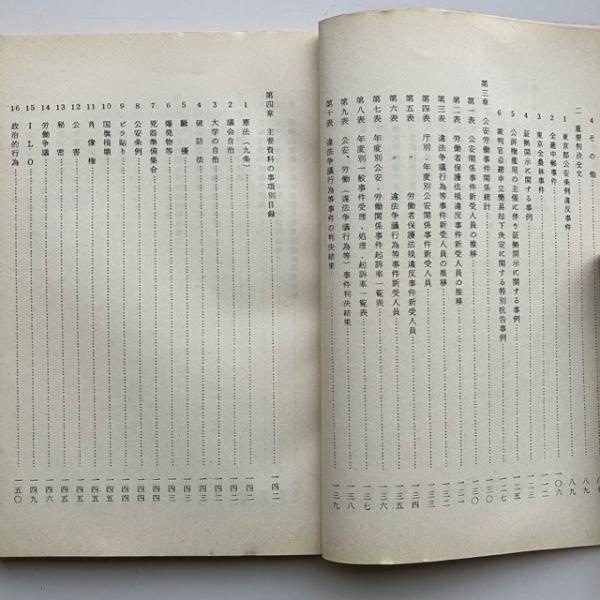 4 その他
二 重要判決全文
1 東京都公安条例違反事件……八九
2 全逓中郵事件……一〇六
3 東京全農林事件……一一二
4 証拠開示に関する事例……一二三
5 公訴権濫用の主張に伴う証拠開示に関する事例……一二五
6 裁判官忌避申立簡易却下決定に関する特別抗告事例……一二七
第三章 公安労働事件関係統計……一三〇
第一表 公安関係事件新受人員の推移……一三〇
第二表 労働者保護法規違反事件新受人員の推移
第三表 違法争議行為等事件新受人員の推移
第四表 庁別、年度別公安関係事件新受人員
第五表 〃 労働者保護法規違反事件新受人員
第六表 〃 違法争議行為等事件新受人員……一三五
第七表 年度別公安、労働関係事件起訴率一覧表……一三六
第八表 年度別一般事件受理、処理、起訴率一覧表……一三七
第九表 公安、労働(違法争議行為等)事件判決結果……一三八
第十表 違法争議行為等事件の判決結果……一三九
第四章 主要資料の事項別目録……一四二
1 憲法(九条)……一四二
2 議会自治……一四二
3 大学の自治……一四二
4 破防法……一四三
5 騒擾……一四三
6 爆発物等……一四三
7 兇器準備集合……一四四
8 公安条例……一四四
9 ビラ貼り……一四四
10 国旗損壊……一四五
11 肖像権……一四五
12 公害……一四五
13 秘密……一四五
14 労働争議……一四六
15 ILO……一四九
16 政治的行為……一五〇